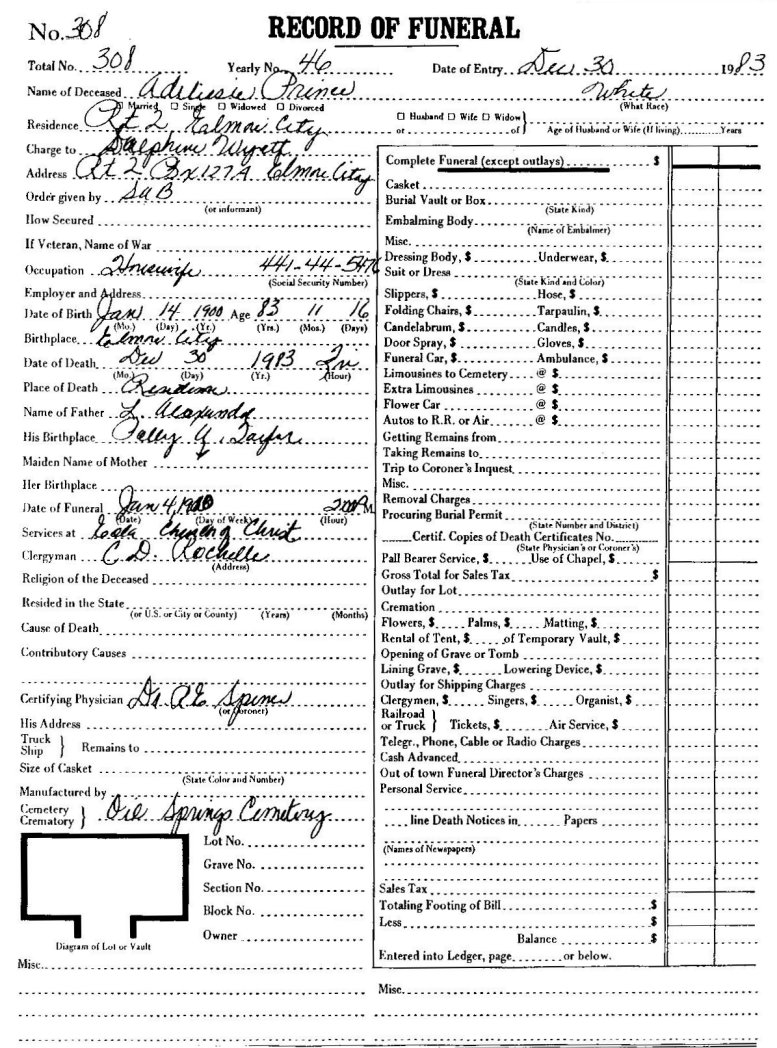 No. 308 RECORD OF FUNERAL
Total No. 308 Yearly No. 46 Date of Entry Dec 30 1983
Name of Deceased Prince White
☐ Married ☐ Single ☐ Widowed ☐ Divorced (What Race)
Residence Rt 2 City ☐ Husband ☐ Wife ☐ Widow } or of Age of Husband or Wife (If living) Years
Charge to Dalephine Wyatt
Address Rt 2 Bx 127A Elmore City
Order given by
(or informant)
How Secured
If Veteran, Name of War
Occupation Housewife 441-44-5476
(Social Security Number)
Employer and Address
Date of Birth Jan 14 1900 Age 83 11 16
(Mo.) (Day) (Yr.) (Yrs.) (Mos.) (Days)
Birthplace Elmore City
Date of Death Dec 30 1983
(Mo.) (Day) (Yr.) (Hour)
Place of Death Residence
Name of Father L.
His Birthplace Taylor
Maiden Name of Mother
Her Birthplace
Date of Funeral Jan 4, 2:00 PM
(Date) (Day of Week) (Hour)
Services at Church of Christ
Clergyman C. D. Rochelle
(Address)
Religion of the Deceased
Resided in the State
(or U.S. or City or County) (Years) (Months)
Cause of Death
Contributory Causes
Certifying Physician Dr.
(or Coroner)
His Address
Truck Ship } Remains to
Size of Casket
(State Color and Number)
Manufactured by
Cemetery Crematory } Oil Springs Cemetery
Lot No.
Grave No.
Section No.
Block No.
Owner
Diagram of Lot or Vault
Misc.
Complete Funeral (except outlays) $
Casket
Burial Vault or Box
(State Kind)
Embalming Body
(Name of Embalmer)
Misc.
Dressing Body, $ Underwear, $
Suit or Dress
(State Kind and Color)
Slippers, $ Hose, $
Folding Chairs, $ Tarpaulin, $
Candelabrum, $ Candles, $
Door Spray, $ Gloves, $
Funeral Car, $ Ambulance, $
Limousines to Cemetery @ $
Extra Limousines @ $
Flower Car @ $
Autos to R.R. or Air @ $
Getting Remains from
Taking Remains to
Trip to Coroner's Inquest
Misc.
Removal Charges
Procuring Burial Permit
(State Number and District)
Certif. Copies of Death Certificates No.
(State Physician's or Coroner's)
Pall Bearer Service, $ Use of Chapel, $
Gross Total for Sales Tax $
Outlay for Lot
Cremation
Flowers, $ Palms, $ Matting, $
Rental of Tent, $ of Temporary Vault, $
Opening of Grave or Tomb
Lining Grave, $ Lowering Device, $
Outlay for Shipping Charges
Clergymen, $ Singers, $ Organist, $
Railroad or Truck } Tickets, $ Air Service, $
Telegr., Phone, Cable or Radio Charges
Cash Advanced
Out of town Funeral Director's Charges
Personal Service
line Death Notices in Papers
(Names of Newspapers)
Sales Tax
Totaling Footing of Bill $
Less $
Balance $
Entered into Ledger, page or below.
Misc.